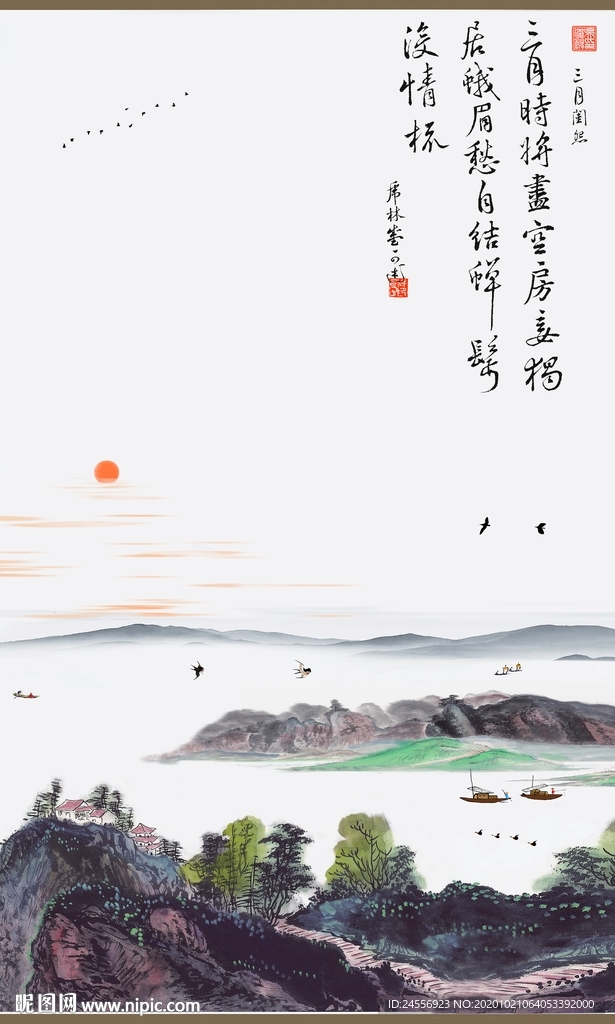 三月閨怨
三月時將盡空房妾獨
居蛾眉愁自結蟬鬢
没情梳
昵图网 www.nipic.com
ID:24556923 NO:20201021064053392000